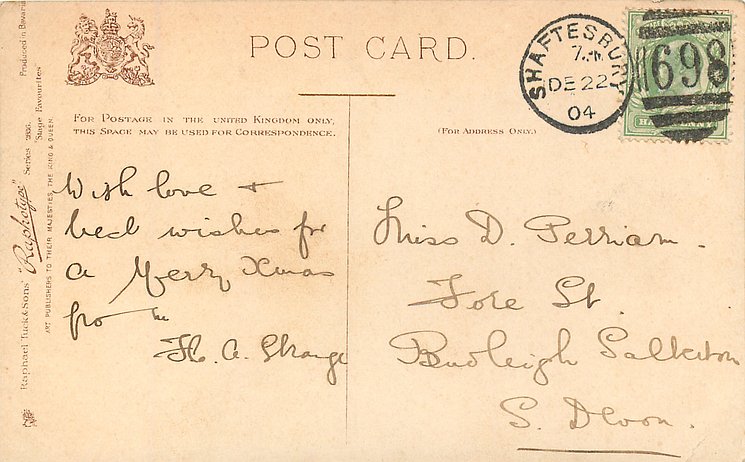 POST CARD.
FOR POSTAGE IN THE UNITED KINGDOM ONLY,
THIS SPACE MAY BE USED FOR CORRESPONDENCE.
(FOR ADDRESS ONLY.)
SHAFTESBURY
DE 22
04
698
HALFPENNY
With love +
best wishes for
a Merry Xmas
from
A. Strange
Miss D. Perriam.
Fore St.
Budleigh Salterton
S. Devon.
Raphael Tuck & Sons' "Raphotype" Series
"Stage Favourites"
ART PUBLISHERS TO THEIR MAJESTIES THE KING & QUEEN.
Produced in Bavaria